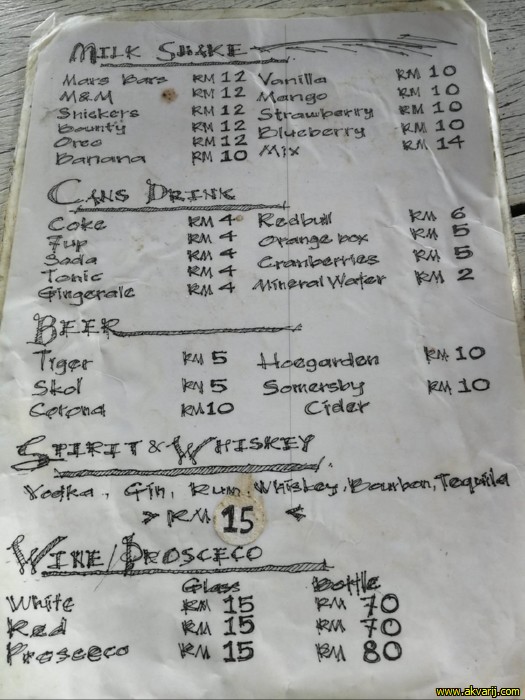 MILK SHAKE
Mars Bars RM 12 Vanilla RM 10
M&M RM 12 Mango RM 10
Snickers RM 12 Strawberry RM 10
Bounty RM 12 Blueberry RM 10
Oreo RM 12 Mix RM 14
Banana RM 10
CANS DRINK
Coke RM 4 Redbull RM 6
7up RM 4 Orange box RM 5
Soda RM 4 Cranberries RM 5
Tonic RM 4 Mineral Water RM 2
Gingerale RM 4
BEER
Tiger RM 5 Hoegarden RM 10
Skol RM 5 Somersby RM 10
Corona RM 10 Cider
SPIRIT & WHISKEY
Vodka, Gin, Rum, Whiskey, Bourbon, Tequila
> RM 15 <
WINE/PROSCECO
Glass Bottle
White RM 15 RM 70
Red RM 15 RM 70
Prosceco RM 15 RM 80
www.akvarij.com